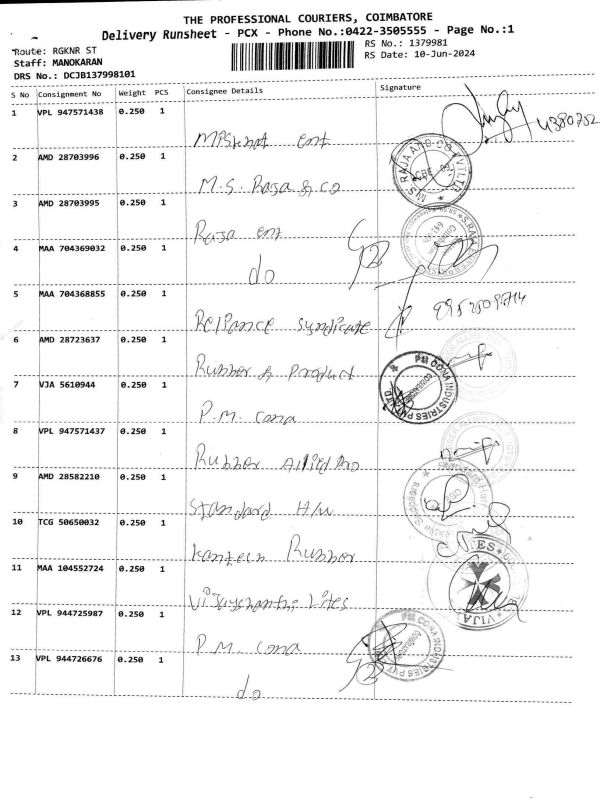 THE PROFESSIONAL COURIERS, COIMBATORE
Delivery Runsheet - PCX - Phone No.:0422-3505555 - Page No.:1
Route: RGKNR ST
RS No.: 1379981
Staff: MANOKARAN
RS Date: 10-Jun-2024
DRS No.: DCJB137998101
S No Consignment No Weight PCS Consignee Details Signature
1 VPL 947571438 0.250 1
ent
2 AMD 28703996 0.250 1
M.S. Raja & co
3 AMD 28703995 0.250 1
Raja ent
4 MAA 704369032 0.250 1
do
5 MAA 704368855 0.250 1
Reliance syndicate
6 AMD 28723637 0.250 1
Rubber & Product
7 VJA 5610944 0.250 1
P.M. cona
8 VPL 947571437 0.250 1
Rubber Allied Pro
9 AMD 28582210 0.250 1
Standard H/w
10 TCG 50650032 0.250 1
Rubber
11 MAA 104552724 0.250 1
Lites
12 VPL 944725987 0.250 1
P.M. cona
13 VPL 944726676 0.250 1
do
PM CONA INDUSTRIES PVT LTD